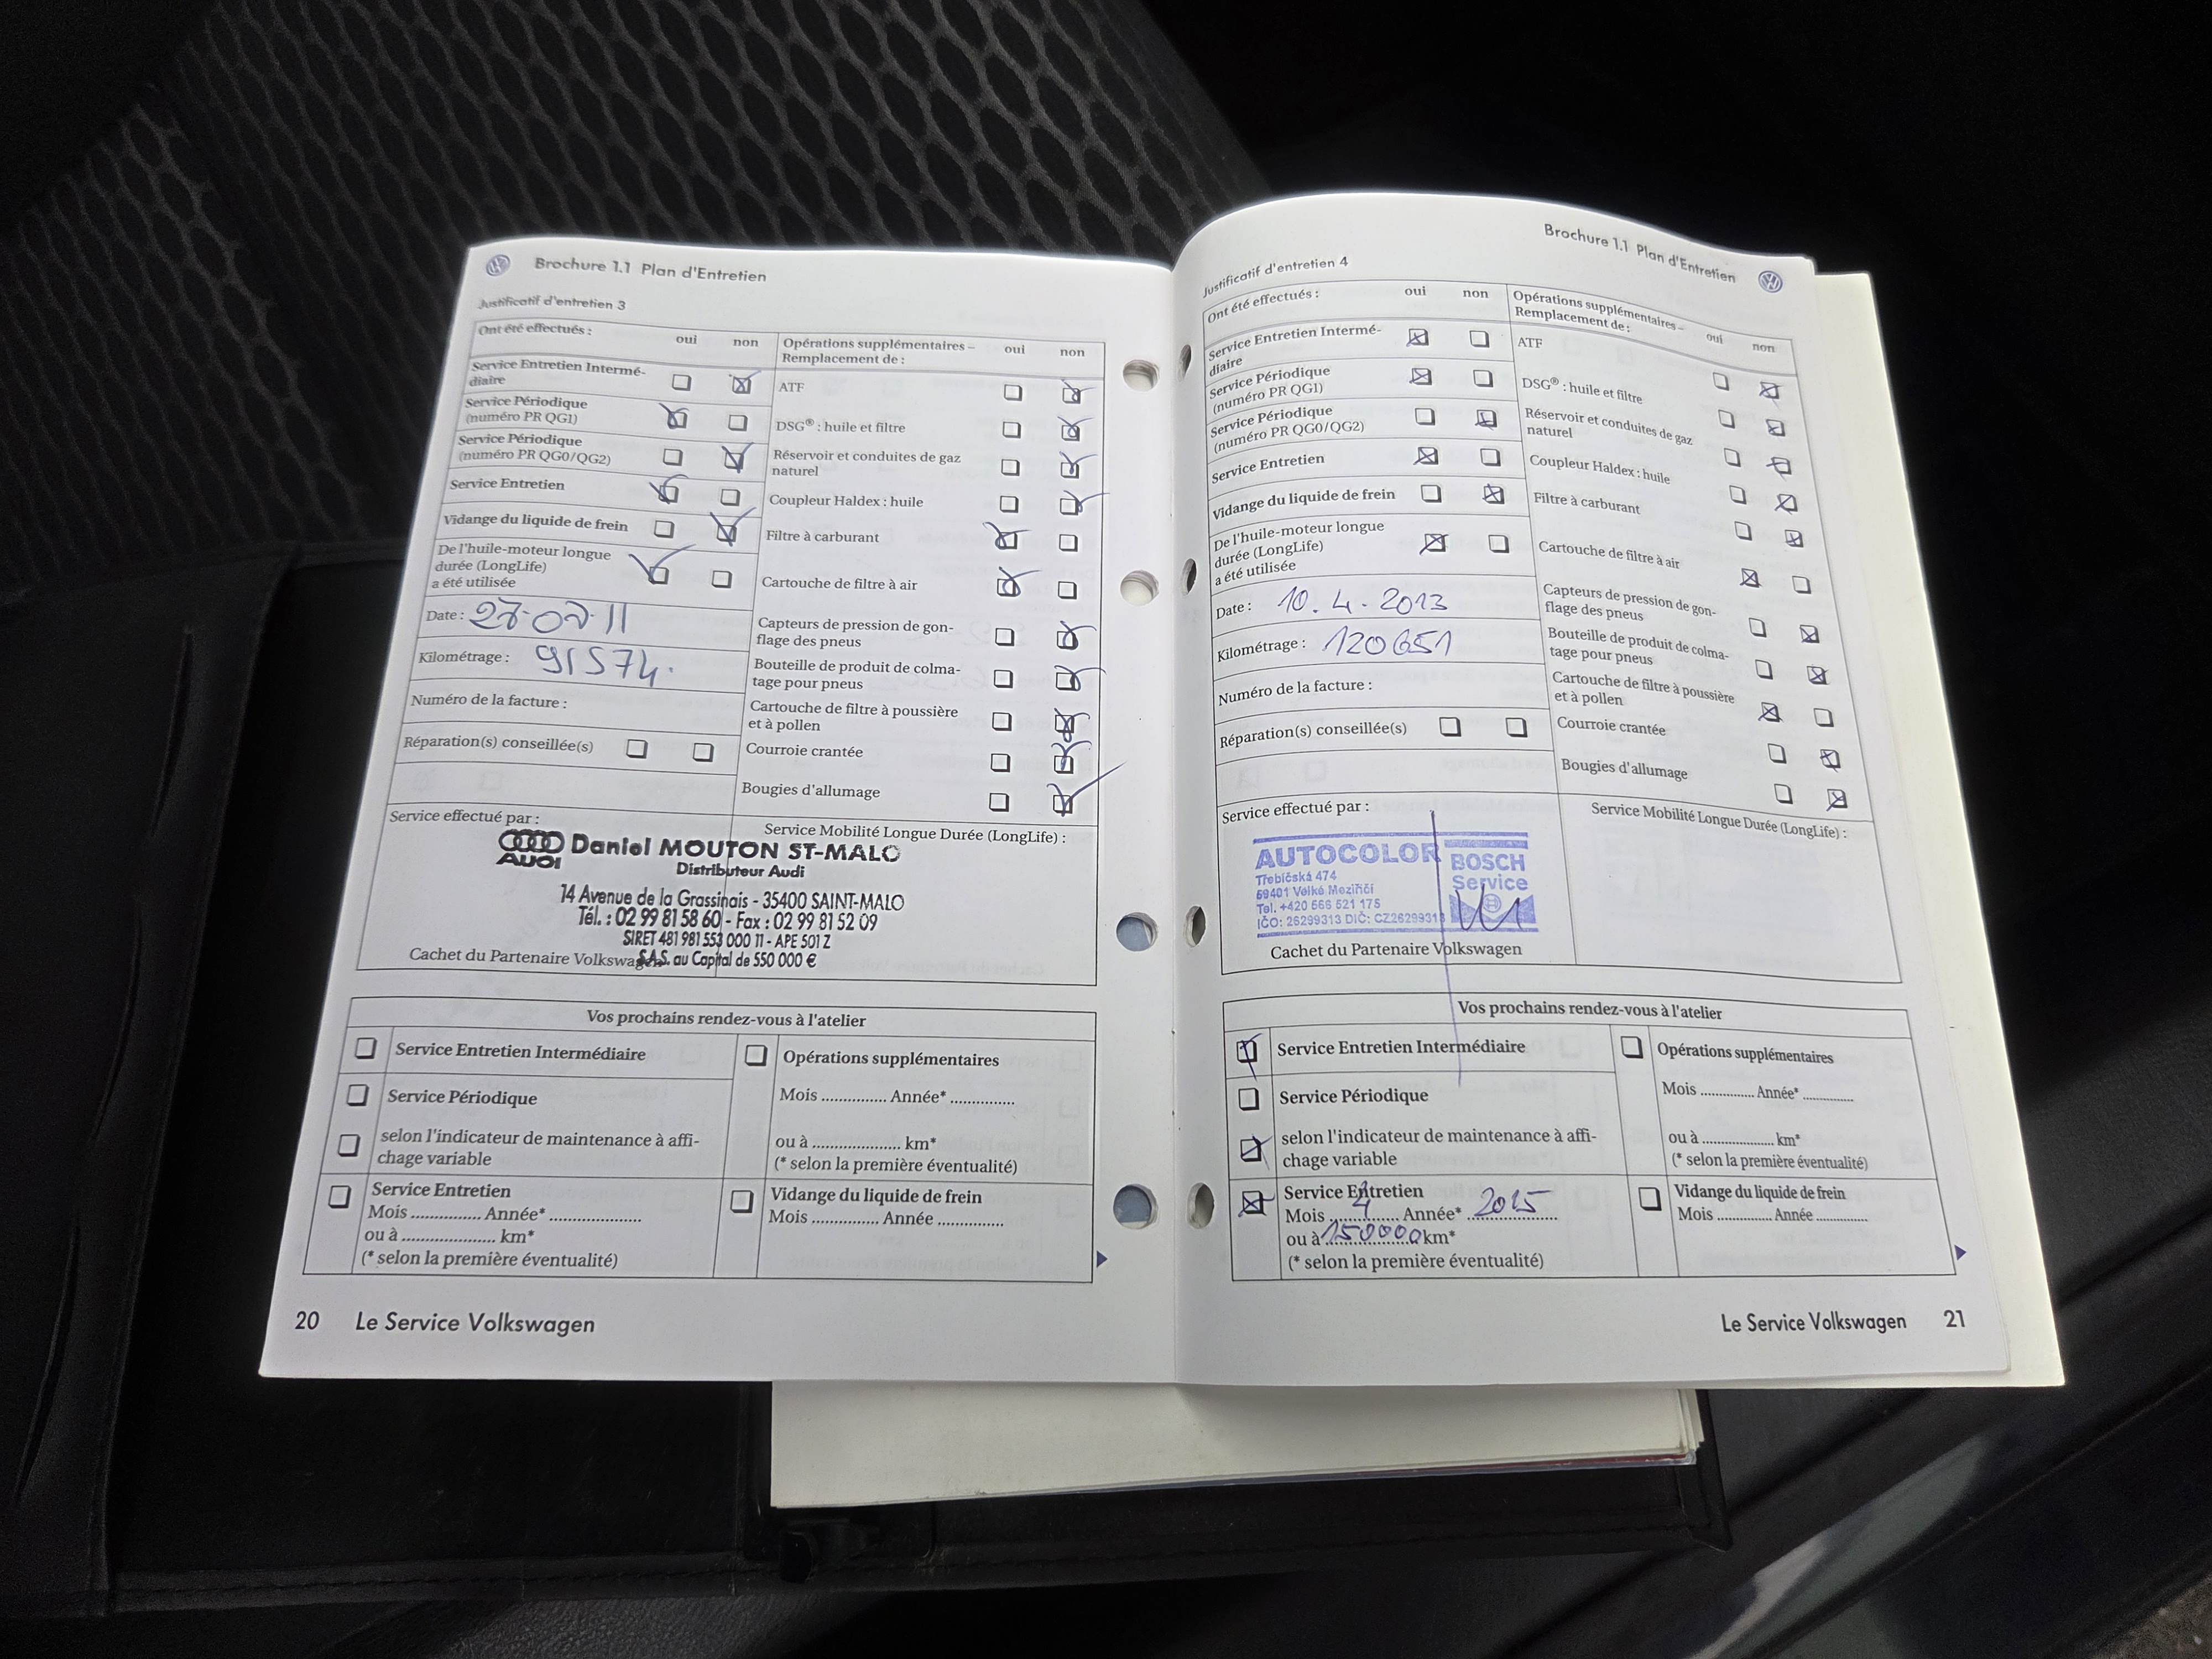 Brochure 1.1 Plan d'Entretien
Justificatif d'entretien 3
Ont été effectués :
oui
non
Opérations supplémentaires –
Remplacement de :
oui
non
Service Entretien Intermé-
diaire
ATF
Service Périodique
(numéro PR QG1)
DSG® : huile et filtre
Service Périodique
(numéro PR QG0/QG2)
Réservoir et conduites de gaz
naturel
Service Entretien
Coupleur Haldex : huile
Vidange du liquide de frein
Filtre à carburant
De l'huile-moteur longue
durée (LongLife)
a été utilisée
Cartouche de filtre à air
Date : 27-07-11
Capteurs de pression de gon-
flage des pneus
Kilométrage : 91574.
Bouteille de produit de colma-
tage pour pneus
Numéro de la facture :
Cartouche de filtre à poussière
et à pollen
Réparation(s) conseillée(s)
Courroie crantée
Bougies d'allumage
Service effectué par :
Service Mobilité Longue Durée (LongLife) :
Audi
Daniel MOUTON ST-MALO
Distributeur Audi
14 Avenue de la Grassinais - 35400 SAINT-MALO
Tél. : 02 99 81 58 60 - Fax : 02 99 81 52 09
SIRET 481 981 553 000 11 - APE 501 Z
S.A.S. au Capital de 550 000 €
Cachet du Partenaire Volkswagen
Vos prochains rendez-vous à l'atelier
Service Entretien Intermédiaire
Opérations supplémentaires
Service Périodique
Mois ............... Année* ...............
selon l'indicateur de maintenance à affi-
chage variable
ou à .................... km*
(* selon la première éventualité)
Service Entretien
Mois ............... Année* ....................
ou à .................... km*
(* selon la première éventualité)
Vidange du liquide de frein
Mois ............... Année ...............
20 Le Service Volkswagen
Brochure 1.1 Plan d'Entretien
Justificatif d'entretien 4
Ont été effectués :
oui
non
Opérations supplémentaires –
Remplacement de :
oui
non
Service Entretien Intermé-
diaire
ATF
Service Périodique
(numéro PR QG1)
DSG® : huile et filtre
Service Périodique
(numéro PR QG0/QG2)
Réservoir et conduites de gaz
naturel
Service Entretien
Coupleur Haldex : huile
Vidange du liquide de frein
Filtre à carburant
De l'huile-moteur longue
durée (LongLife)
a été utilisée
Cartouche de filtre à air
Date : 10. 4. 2013
Capteurs de pression de gon-
flage des pneus
Kilométrage : 120651
Bouteille de produit de colma-
tage pour pneus
Numéro de la facture :
Cartouche de filtre à poussière
et à pollen
Réparation(s) conseillée(s)
Courroie crantée
Bougies d'allumage
Service effectué par :
Service Mobilité Longue Durée (LongLife) :
AUTOCOLOR
Třebíčská 474
59401 Velké Meziříčí
Tel. +420 566 521 175
IČO: 26299313 DIČ: CZ26299313
BOSCH
Service
Cachet du Partenaire Volkswagen
Vos prochains rendez-vous à l'atelier
Service Entretien Intermédiaire
Opérations supplémentaires
Service Périodique
Mois ............... Année* ...............
selon l'indicateur de maintenance à affi-
chage variable
ou à .................... km*
(* selon la première éventualité)
Service Entretien
Mois 4 Année* 2015
ou à 150000 km*
(* selon la première éventualité)
Vidange du liquide de frein
Mois ............... Année ...............
Le Service Volkswagen 21